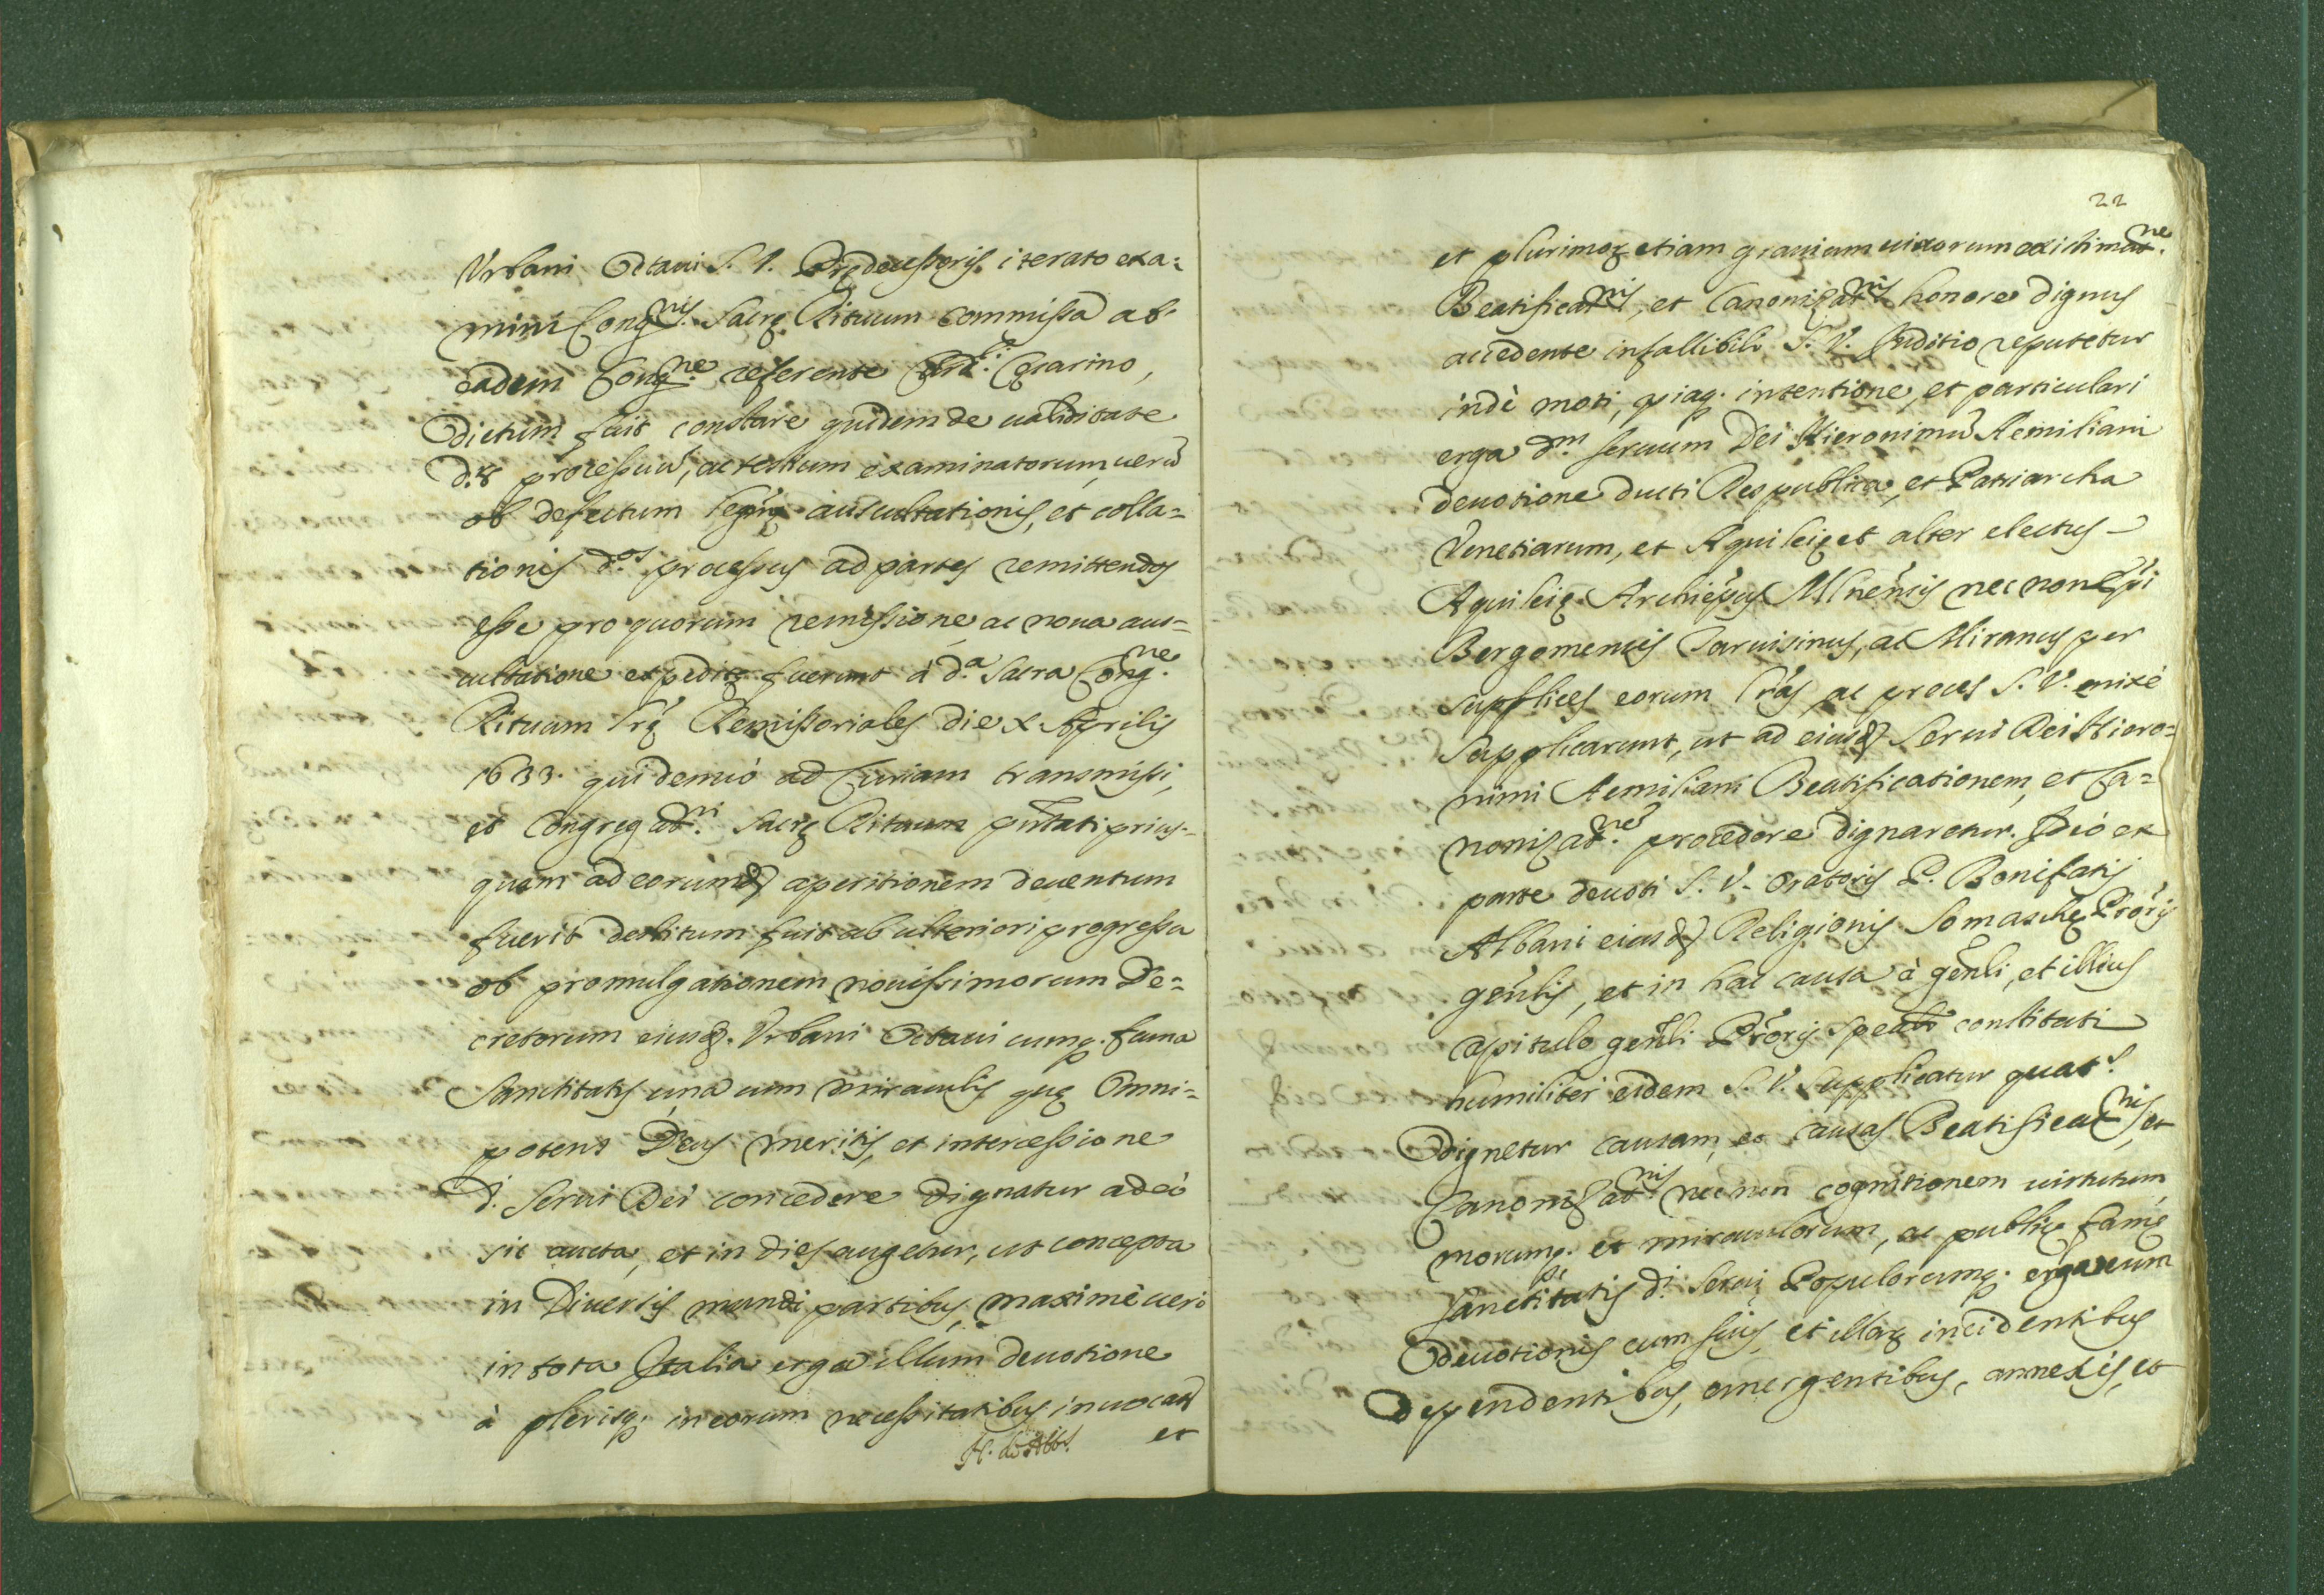 Vrbani Octaui S. V. Prędecessoris iterato exa=
mini Cong.nis Sacrę Rituum commissa ab
eadem Cong.ne referente Card.li
dictum fuit constare quidem de ualiditate
processuũ, ac testium examinatorum, uerũ
ob defectum auscultationis, et colla=
tionis d.os processus ad partes remittendos
esse pro quorum remissione ac noua aus=
cultatione expeditę fuerunt à d.a Sacra Cong.ne
Rituum Lrę Remissoriales die x. Aprilis
1633. qui denuò ad Curiam transmissi,
et Congregat.ni Sacrę Rituum pñtati prius=
quam ad eorumd. aperitionem deuentum
fuerit destitum fuit ab ulteriori progressu
ob promulgationem nouissimorum De=
cretorum eiusd. Vrbani Octaui cumq. fama
Sanctitatis una cum miraculis quę Omni=
potens Deus meritis, et intercessione
d. Serui Dei concedere dignatur adeò
sit aucta, et in dies augetur, ut concepta
in diuersis mundi partibus, maximè uerò
in tota Italia erga illum deuotione
à plerisq. in eorum necessitatibus inuocat
et
22
et plurimoꝝ etiam grauium uirorum existimat.ne
Beatificat.nis, et Canonizat.nis honore dignus
accedente infallibili S. V. Iuditio reputetur
indè moti, piaq. intentione, et particulari
erga d.m seruum Dei Hieronimũ Aemiliani
deuotione ducti Respublica, et Patriarcha
Venetiarum, et Aquileię et alter electus
Aquileię Archiepũs Mlnẽnsis nec non Epĩ
Bergomensis Taruisinus, ac per
supplices eorum Lrãs, ac preces S. V. enixè
supplicarunt, ut ad eiusd. Serui Dei Hiero=
nimi Aemiliani Beatificationem, et Ca=
nonizat.nes procedere dignaretur. Ideò ex
parte deuoti S. V. Oratoris P. Bonifatij
Albani eiusd. Religionis Somaschę Prõris
gẽnlis, et in hac causa à gẽnli, et illius
capitulo gẽnli Prõris spealr constituti
humiliter eidem S. V. supplicatur quat.s
dignetur causam, et causas Beatificat.nis, et
Canonizat.nis nec non cognitionem uirtutum,
morumq. et miraculorum, ac publicę famę
Sanctitatis d.i Serui Populorumq. erga eum
deuotionis cum suis, et illaꝝ incidentibus
dependentibus, emergentibus, annexis, et